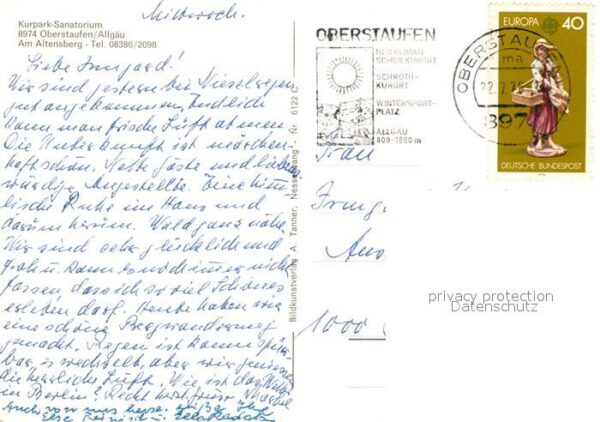 Kurpark-Sanatorium
8974 Oberstaufen/Allgäu
Am Altensberg - Tel. 08386/2098
Mittwoch.
Liebe Irmgard!
Wir sind gestern bei Nieselregen
gut angekommen. Endlich
kann man frische Luft atmen.
Die Unterkunft ist märchen-
haft schön. Nette Gäste und liebens-
würdige Angestellte. Eine himm-
lische Ruhe im Haus und
darum herum. Wald ganz nahe.
Wir sind sehr glücklich und
froh u. kann es noch immer nicht
fassen, dass ich so viel Schönes
erleben darf. Heute haben wir
eine schöne Bergwanderung
gemacht. Regen ist kaum spür-
bar, es wechselt, aber wir geniessen
die herrliche Luft. Wie ist das Wetter
in Berlin? Recht herzl. Grüsse
Auch von mir herzl. Grüße Ihre
Else
Bildkunstverlag A. Tanner, Nesselwang - Nr. 6122
OBERSTAUFEN
HEILKLIMATI-
SCHER KURORT
SCHROTH-
KURORT
WINTERSPORT-
PLATZ
ALLGÄU
800-1800 m
OBERSTAUF
ma
897
EUROPA 40
DEUTSCHE BUNDESPOST
Frau
Irmg.
1000
privacy protection
Datenschutz